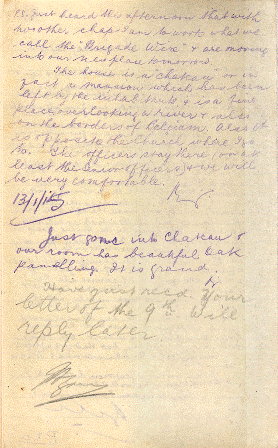 PS. Just heard this afternoon that with
another chap I am to work what we
call the "Brigade Wire" & are moving
into our new place tomorrow.
The house is a "chateau" or in
fact a mansion which has been
left by the inhabitants & is a fine
place overlooking a river & also
on the borders of Belgium. Also it
is opposite the Church where I go
to. The officers stay there or at
least the Senior officers, & we will
be very comfortable.
13/1/15
Just gone into Chateau &
our room has beautiful oak
panelling. It is grand.
Have just recd. your
letter of the 9th. Will
reply later.